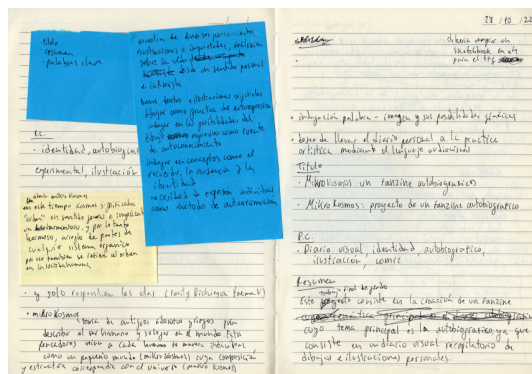 · titulo
· resumen
· palabras clave
muestra de diversos pensamientos,
ilustraciones e inquietudes, reflexión
sobre la vida
desde un sentido personal
e intimista
textos e ilustraciones originales
dibujar como práctica de autoexpresión
indagar en las posibilidades del
dibujo expresivo como fuente
de autoconocimiento
indagar en conceptos como el
recuerdo, la ausencia y la
identidad
necesidad de expresión individual
como método de autoafirmación
P.C.
· identidad, autobiogra
experimental, ilustración
mikrokosmos
en este tiempo kosmos significaba
"orden" en sentido general e implicaba
hermoso, arreglo de partes de
cualquier sistema organico
por eso tambien se refiere al orden
en la vida humana
· y solo respondian las olas (Emily Dickinson Poema V)
· mikro Kosmos
teoria de antiguos filosofos griegos para
describir al ser humano y su lugar en el mundo. Estos
pensadores vieron a cada humano de manera individual
como un pequeño mundo (mikro kosmos) cuya composición
y estructura corresponde con el universo (makro kosmos)
28/10/22
deberia comprar un
sketchbook en a4
para el tfg
· indagación palabra - imagen y sus posibilidades gráficas
· deseo de llevar el diario personal a la practica
artística mediante el lenguaje audiovisual
Titulo
· Mikrokosmos un fanzine autobiografico
· Mikro Kosmos: proyecto de un fanzine autobiografico
P.C.
· Diario visual, identidad, autobiografico,
ilustración, comic
Resumen
trabajo final de grado
Este consiste en la creación de un fanzine
cuyo tema principal es la autobiografica, ya que
consiste en un diario visual recopilatorio de
dibujos e ilustraciones personales.